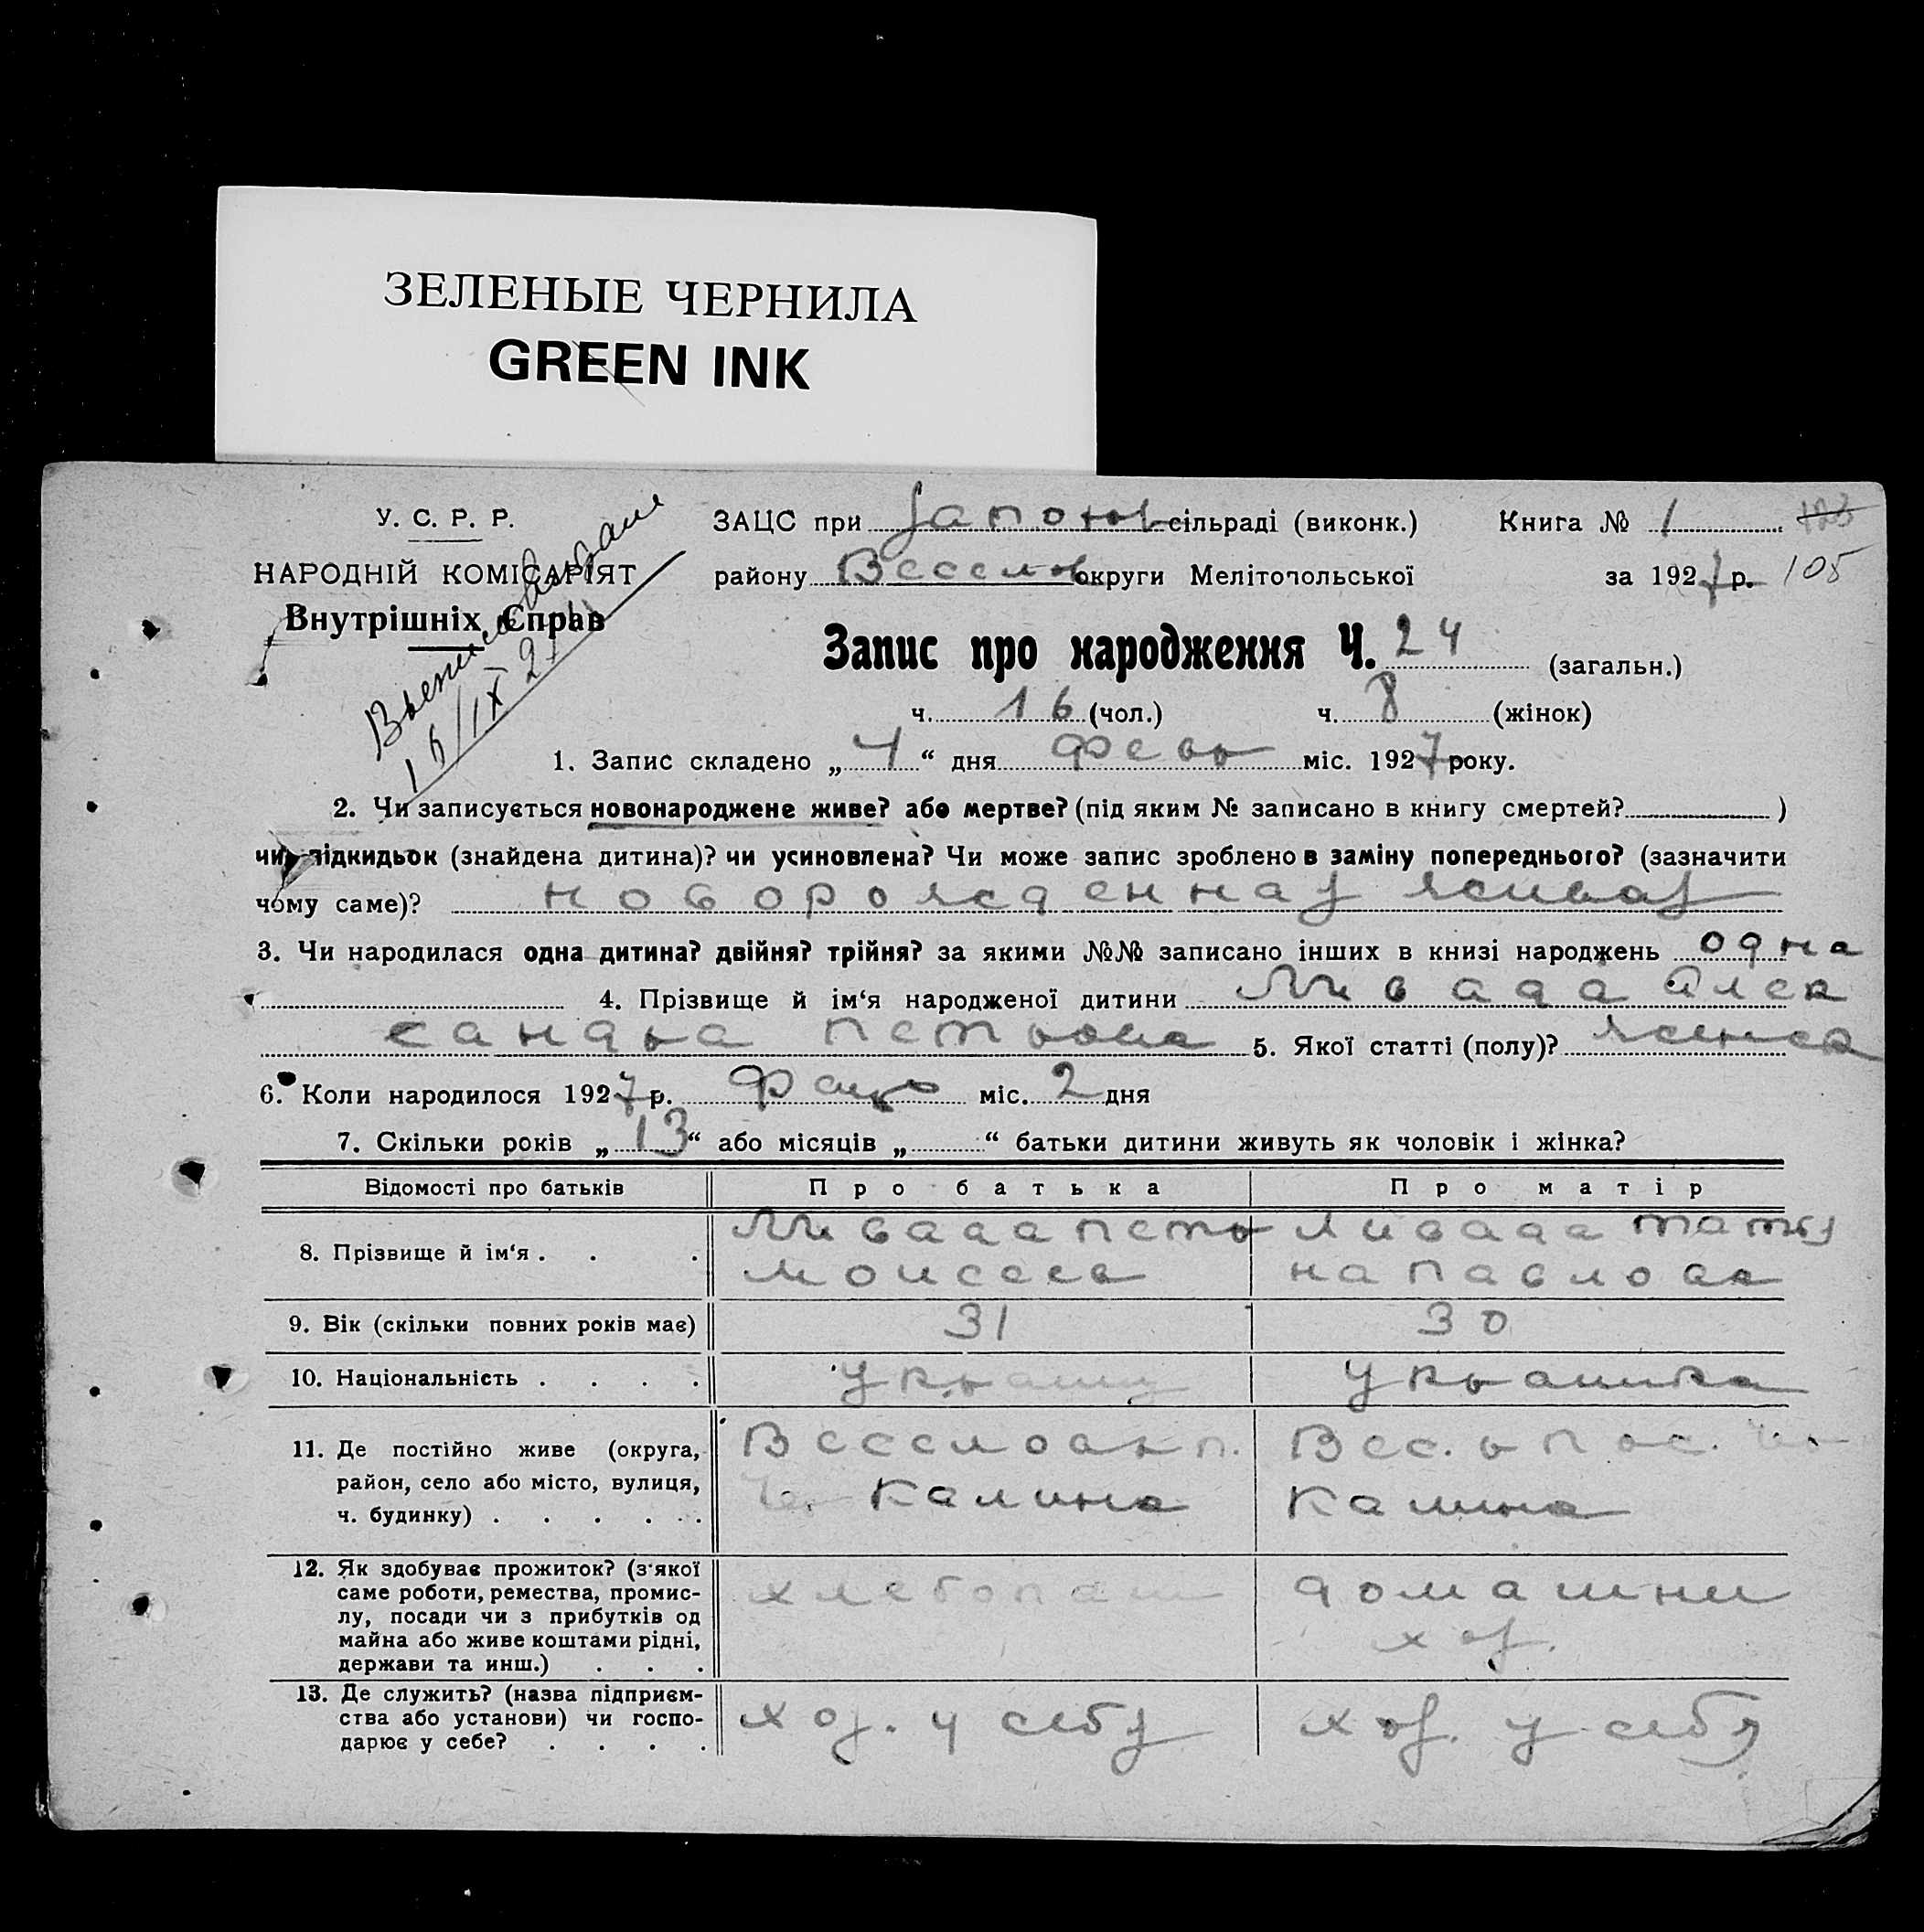 ЗЕЛЕНЫЕ ЧЕРНИЛА
GREEN INK
У. С. Р. Р.
НАРОДНІЙ КОМІСАРІЯТ
Внутрішніх Справ
ЗАЦС при сільраді (виконк.) Книга № 1 123
району Веселов округи Мелітопольської за 1927 р. 105
Запис про народження Ч. 24 (загальн.)
ч. 16 (чол.) ч. 8 (жінок)
1. Запис складено „ 4 “ дня февр міс. 1927 року.
2. Чи записується новонароджене живе? або мертве? (під яким № записано в книгу смертей? )
чи підкидьок (знайдена дитина)? чи усиновлена? Чи може запис зроблено в заміну попереднього? (зазначити
чому саме)? новорожденная живая
3. Чи народилася одна дитина? двійня? трійня? за якими №№ записано інших в книзі народжень одна
4. Прізвище й ім‘я народженої дитини Ливада Алек
сандра Петровна 5. Якої статті (полу)? женск
6. Коли народилося 1927 р. міс. 2 дня
7. Скільки років „ 13 “ або місяців „ “ батьки дитини живуть як чоловік і жінка?
Відомості про батьків Про батька Про матір
8. Прізвище й ім‘я . . . Ливада Петр Ливада Татья
Моисеев на Павловна
9. Вік (скільки повних років має) 31 30
10. Національність . . . . украин украинка
11. Де постійно живе (округа, Веселовск р. Вес.
район, село або місто, вулиця, Калина Калина
ч. будинку) . . . . . .
12. Як здобуває прожиток? (з якої хлебопаш домашни
саме роботи, ремества, промис- хоз.
лу, посади чи з прибутків од
майна або живе коштами рідні,
держави та инш.) . . .
13. Де служить? (назва підприєм- хоз. у себя хоз. у себя
ства або установи) чи госпо-
дарює у себе? . . . .